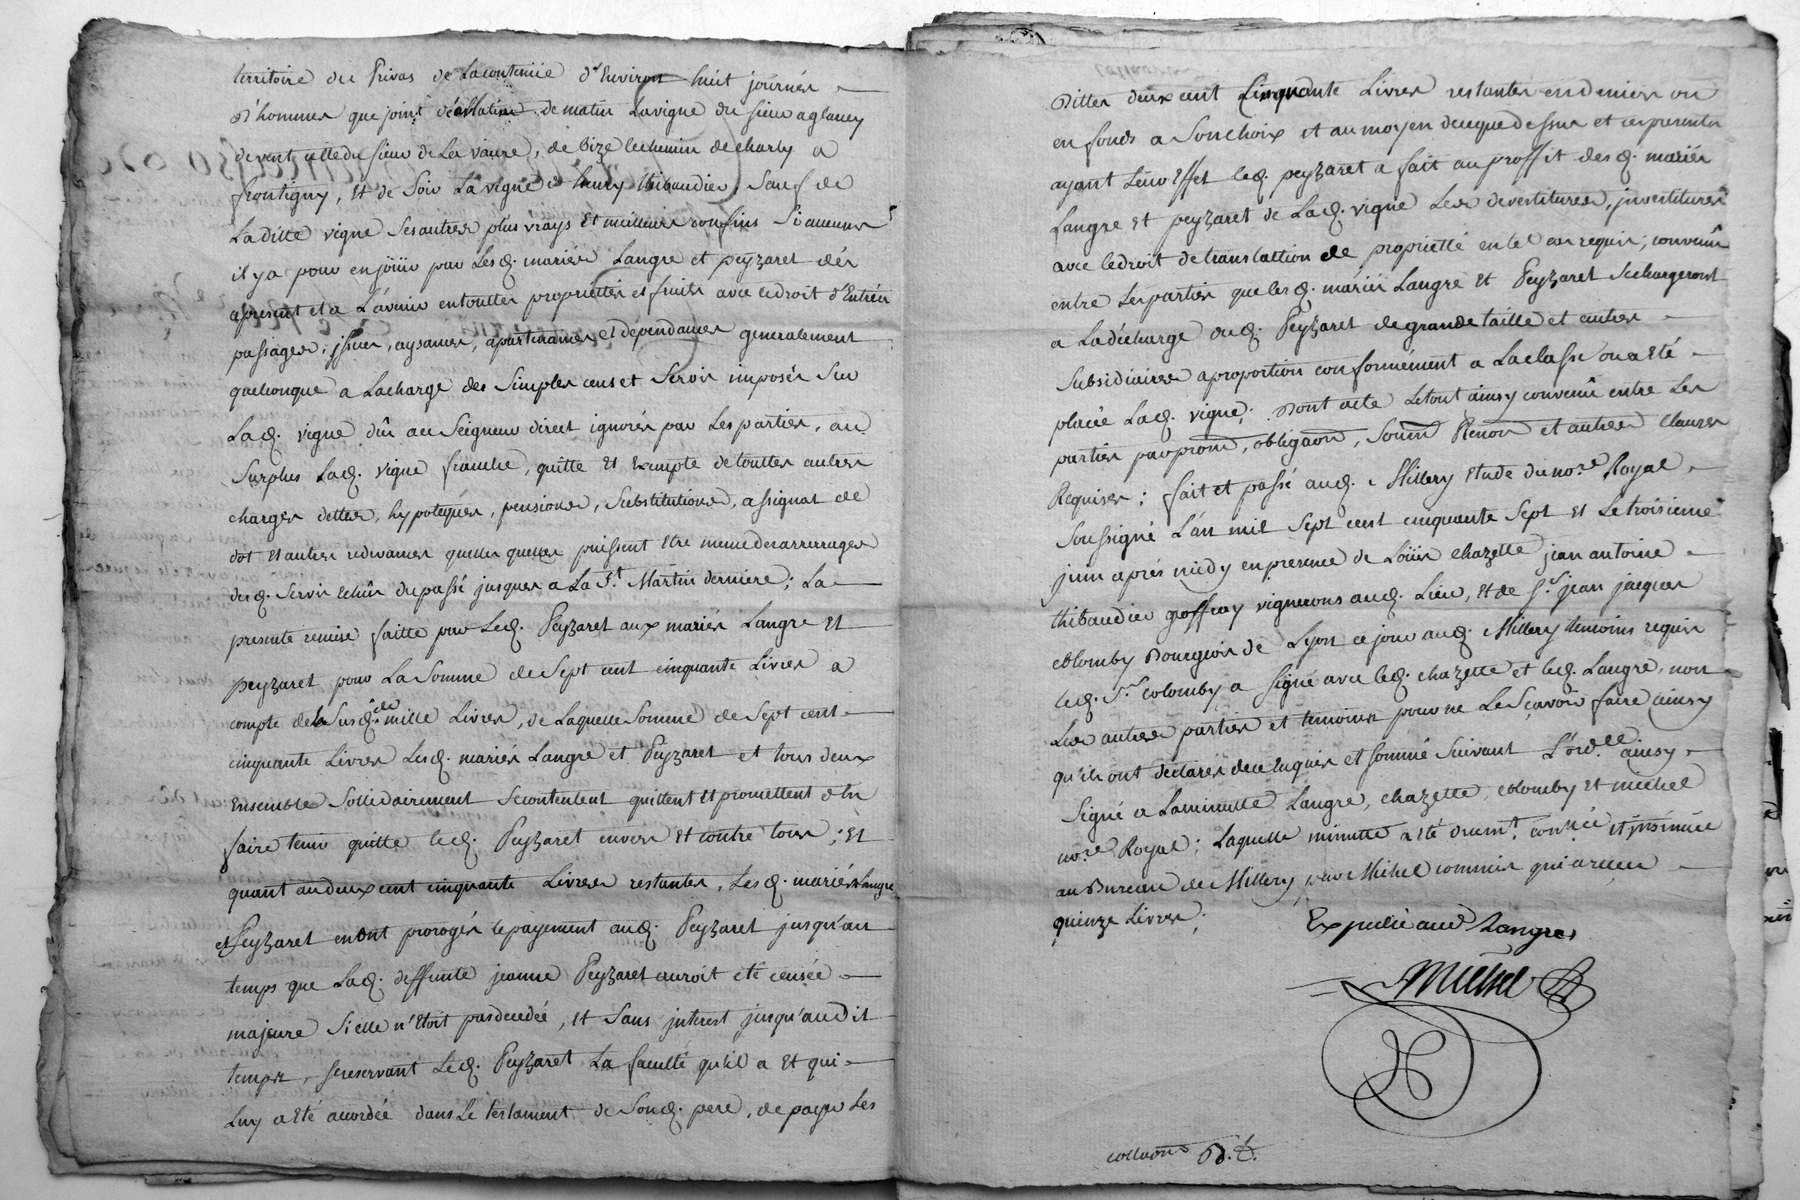 territoire des Privas de Lacontenüe d'Environ huit journés
d'hommes que joint de matin la vigne du sieur aglaney
devent celle du sieur de La vaure, de bize le chemin de charly a
frontigny, et de soir la vigne henry thibaudier, sauf de
La ditte vigne ses autres plus vrays et meilleurs confins si aucuns
il y a pour en joüir par Lesd. mariés Langre et peyzaret dés
apresent et a L'avenir en touttes proprietés et fruits avec le droit d'Entrées
passages, issües, aysances, apartenances et dépendances generalement
quelconque a La charge des simples cens et servis imposés sur
Lad. vigne dûs au Seigneur direct ignorés par Les parties, au
surplus Lad. vigne franche, quitte et exempte de touttes autres
charges dettes, hypotéques, pensions, substitutions, assignat de
dot et autres redevances quelles quelles puissent être meme des arrerages
desd. servis échûs du passé jusques a La St. Martin derniere; La
presente remise faitte par Led. Peyzaret aux mariés Langre et
peyzaret pour La Somme de Sept cent cinquante Livres a
compte de la susd. de mille Livres, de Laquelle Somme de Sept cent
cinquante Livres Lesd. mariés Langre et Peyzaret et tous deux
Ensemble Sollidairement se contentent quittent et promettent d'En
faire tenir quitte led. Peyzaret envers et contre tous; et
quant au deux cent cinquante Livres restantes, Lesd. mariés Langre
et Peyzaret en ont prorogés le payement aud. Peyzaret jusqu'au
temps que Lad. deffunte jeanne Peyzaret auroit eté censée
majeure si elle n'étoit pas decedée, et sans interest jusqu'au dit
temps, se reservant Led. Peyzaret La faculté qu'il a et qui
Luy a eté accordée dans Le testament de Sond. pere, de payer Les
dittes deux cent cinquante Livres restantes en deniers ou
en fonds a Son choix et au moyen de ce que dessus et ces presentes
ayant Leur Effet led. peyzaret a fait au proffit desd. mariés
Langre et peyzaret de Lad. vigne Les devestitures, investitures
avec le droit de translattion de proprietté en tel cas requis; convenû
entre Les parties que lesd. mariés Langre et Peyzaret se chargeront
a La décharge dud. Peyzaret de grande taille et autres
subsidiaires a proportion conformément a La classe ou a eté
placée Lad. vigne; Dont acte Le tout ainsy convenû entre Les
parties par prom, obligaon, soum Renon et autres clauses
Requises: fait et passé aud. Millery Etude du nore Royal
Soussigné L'an mil sept cent cinquante sept et Le troisieme
juin aprés midy en presence de Loüis chazette jean antoine
thibaudier geoffray vignerons aud. Lieu, et de Sr. jean jacques
colomby Bourgeois de Lyon ce jour aud. Millery temoins requis
led. Sr. colomby a signé avec led. chazette et led. Langre, non
Les autres parties et temoins pour ne Le sçavoir faire ainsy
qu'ils ont déclarés de ce Enquis et sommé suivant L'ordce. ainsy
Signé a La minutte Langre, chazette, colomby et michel
nore Royal; Laquelle minutte a eté duemt. conllée et insinuée
au Bureau de Millery par Michel commis qui a reçu
quinze Livres;
Expedié aud Langres
Michel
collaonné